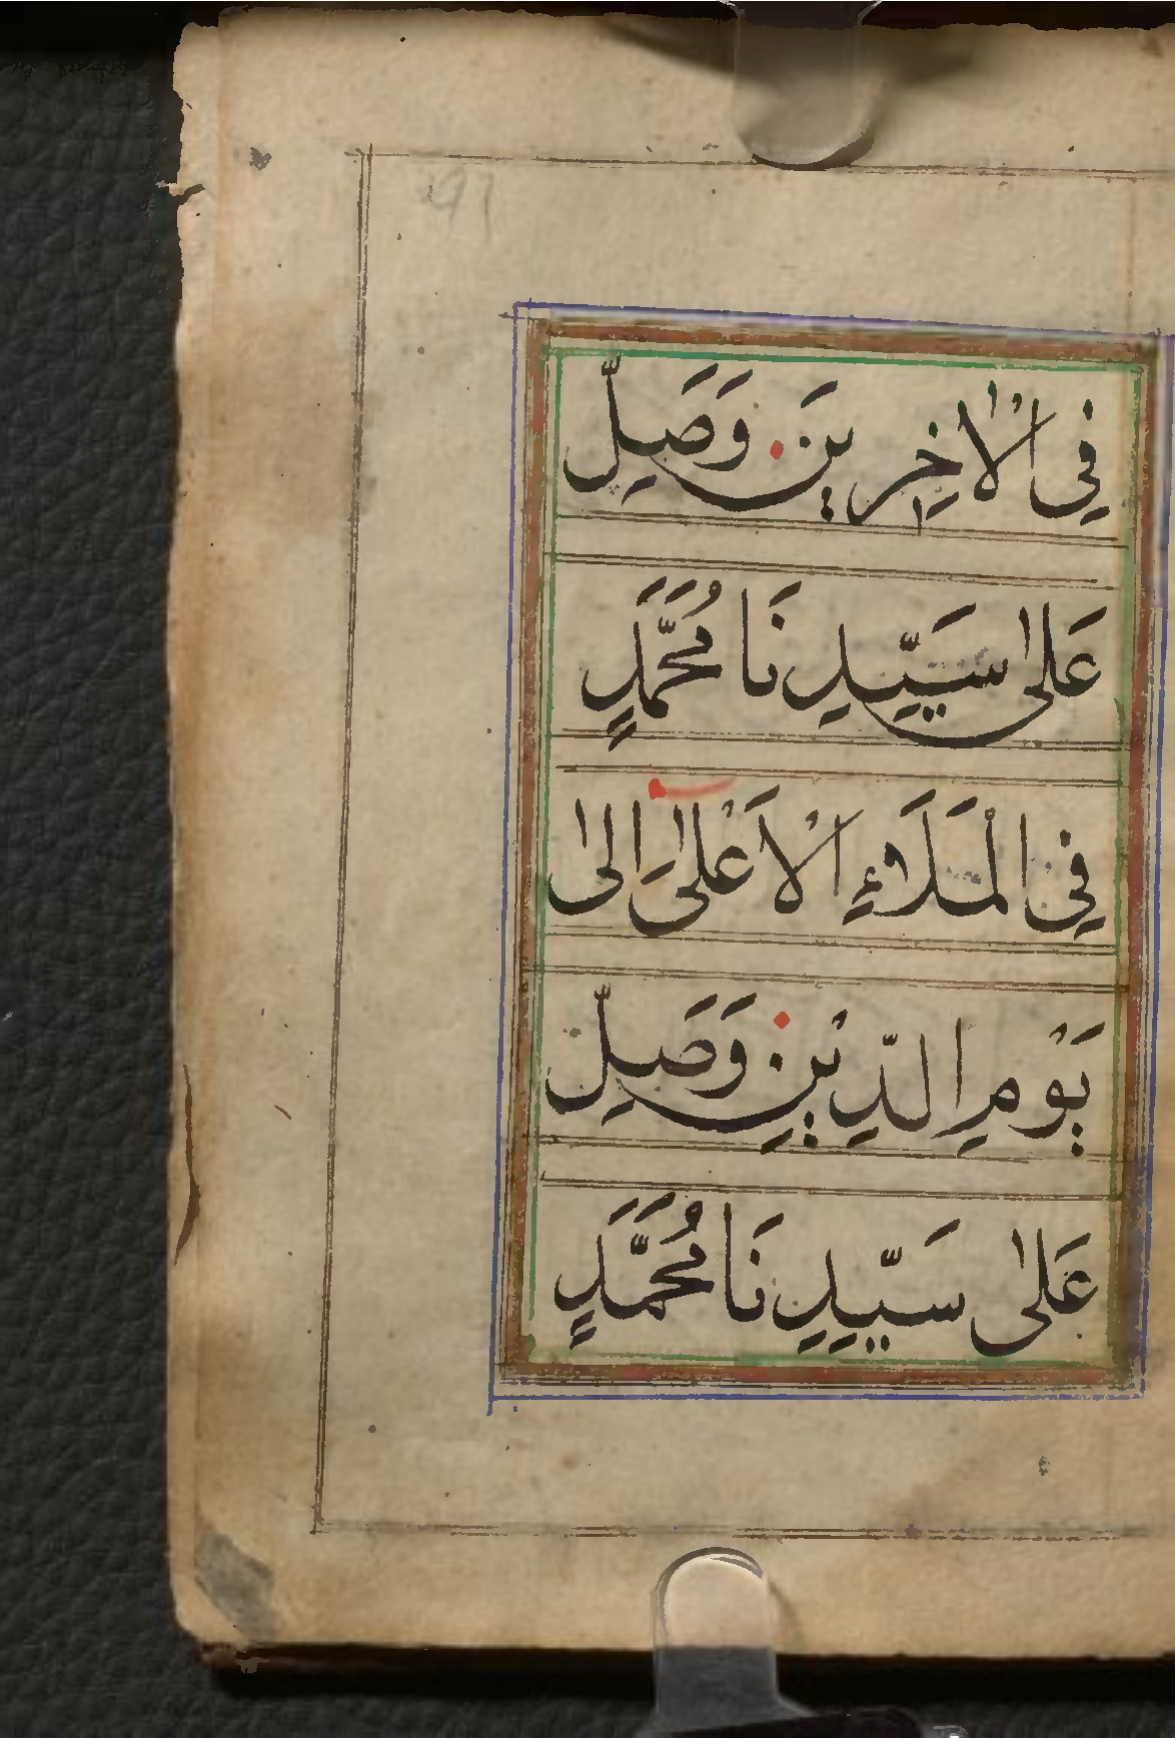 91
فِى الْاٰخِرِينَ وَصَلِّ
عَلٰى سَيِّدِنَا مُحَمَّدٍ
فِى الْمَلَاءِ الْاَعْلٰى اِلٰى
يَوْمِ الدِّيْنِ وَصَلِّ
عَلٰى سَيِّدِنَا مُحَمَّدٍ